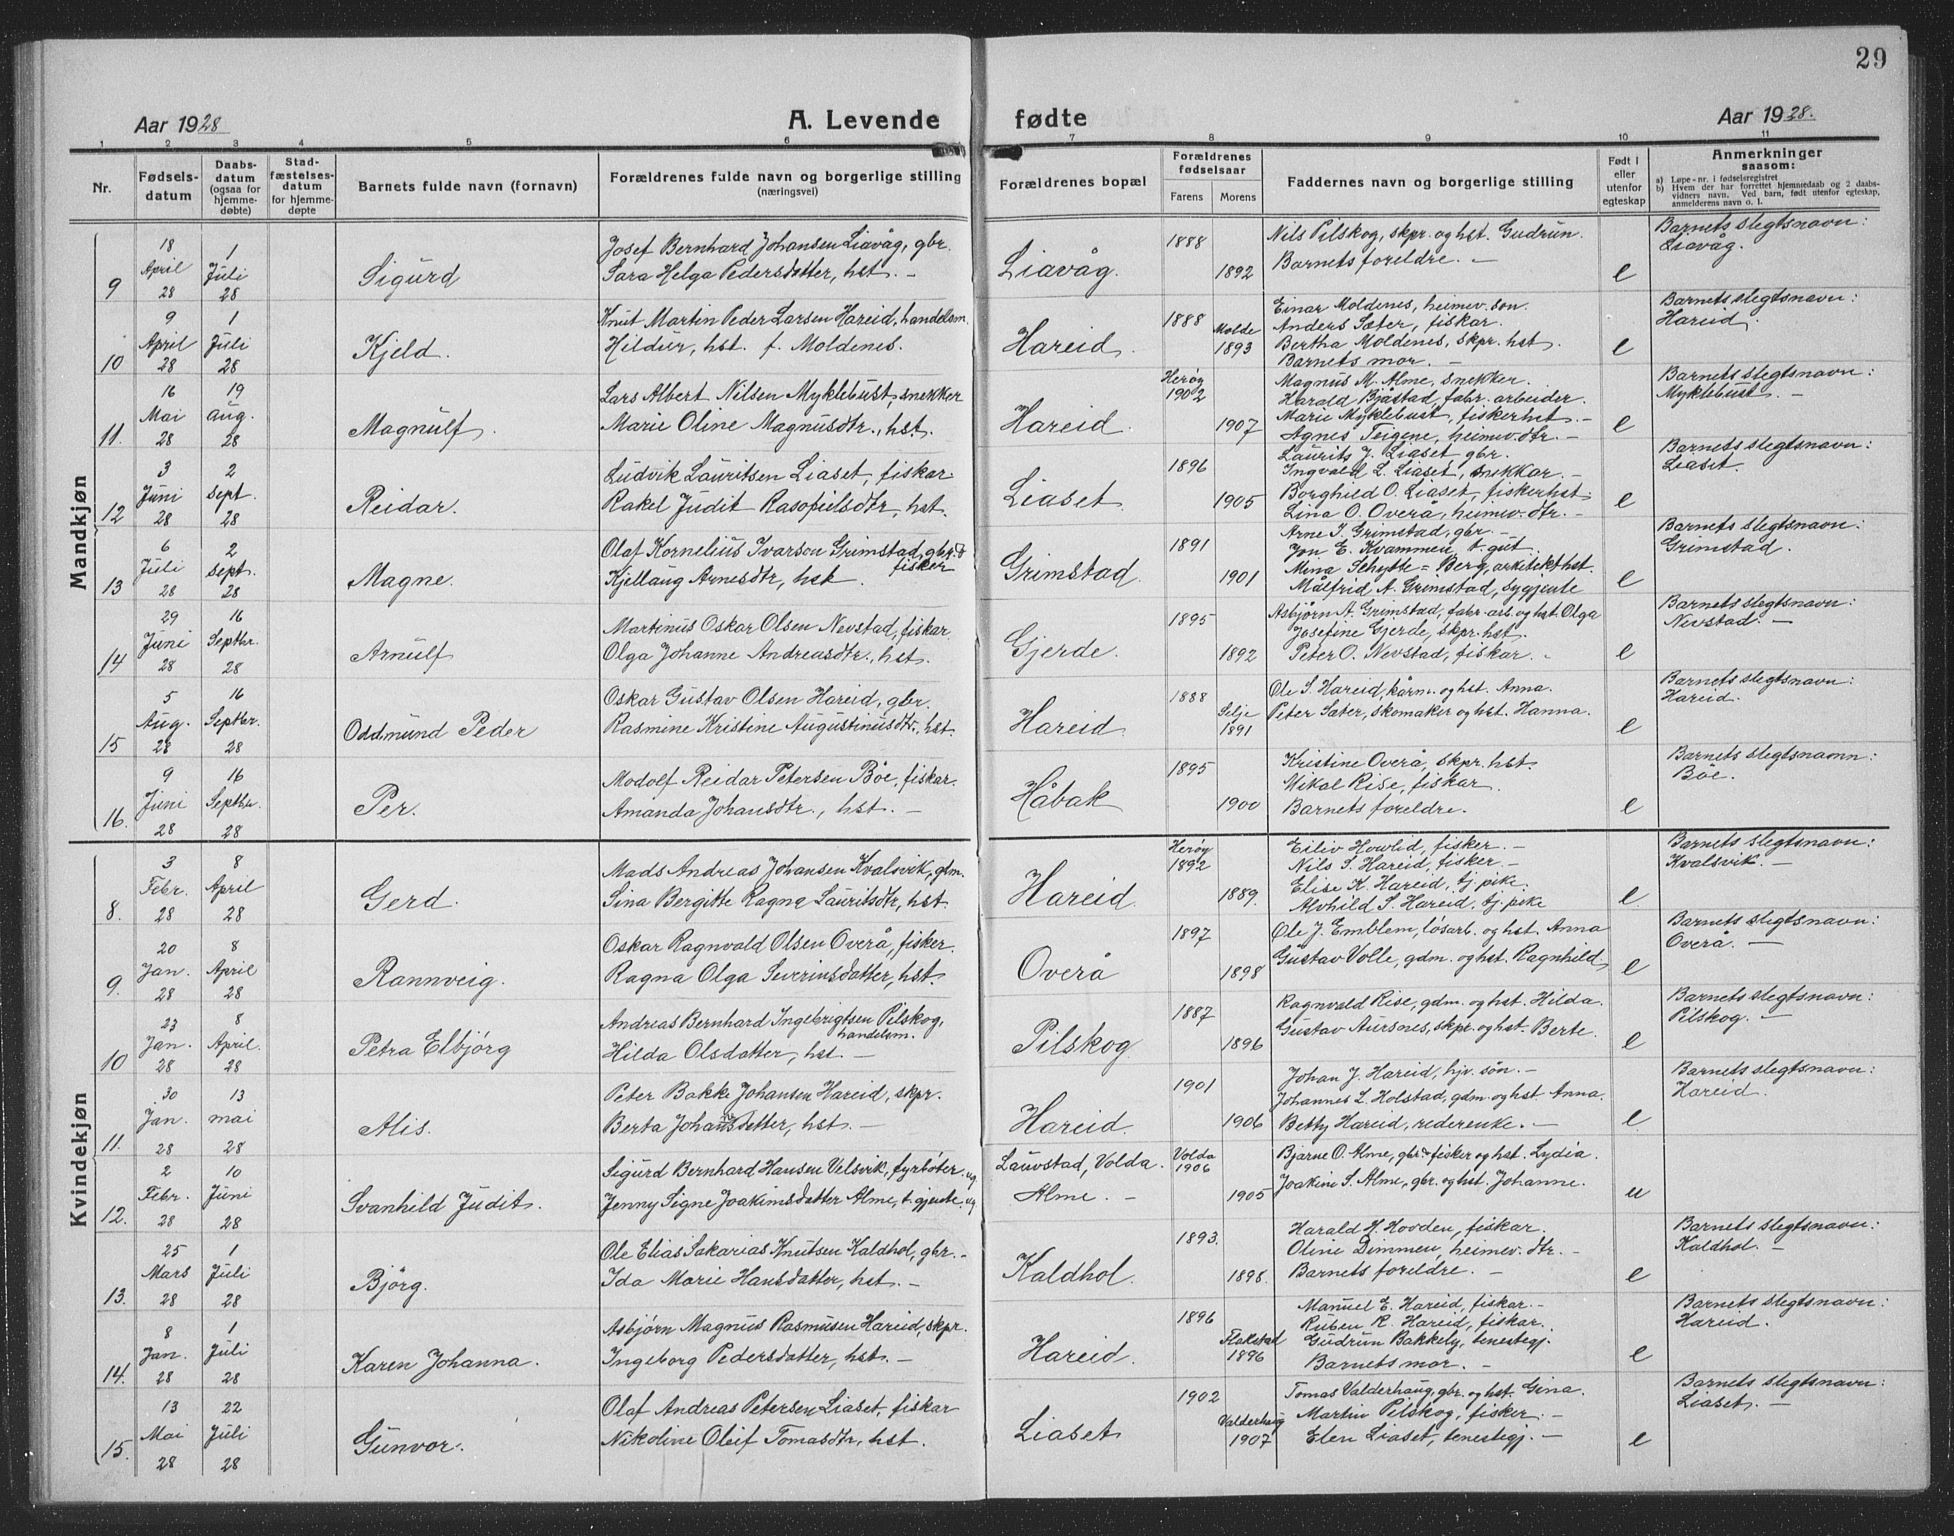 29
Aar 1928
A. Levende
fødte
Aar 1928.
1 2 3 4 5 6 7 8 9 10 11
Nr.
Fødsels-
datum
Daabs-
datum
(ogsaa for
hjemme-
døbte)
Stad-
fæstelses-
datum
for hjemme-
døpte
Barnets fulde navn (fornavn)
Forældrenes fulde navn og borgerlige stilling
(næringsvei)
Forældrenes bopæl
Forældrenes
fødselsaar
Farens Morens
Faddernes navn og borgerlige stilling
Født i
eller
utenfor
egteskap
Anmerkninger
saasom:
a) Løpe-nr. i fødselsregistret
b) Hvem der har forrettet hjemmedaab og 2 daabs-
vidners navn. Ved barn, født utenfor egteskap,
anmelderens navn o. l.
Mandkjøn
9
18
April
28
1
Juli
28
Sigurd
Josef Bernhard Johansen Liavåg, gbr.
Sara Helga Pedersdatter, hst. -
Liavåg.
1888
1892
Nils Pilskog, skpr. og hst. Gudrun.
Barnets foreldre. -
e
Barnets slegtsnavn:
Liavåg.
10
9
April
28
1
Juli
28
Kjeld.
Knut Martin Peder Larsen Hareid, handelsm.
Hildur, hst. f. Moldenes.
Hareid.
1888
Molde
1893
Einar Moldenes, heimev. son
Anders Sæter, fiskar.
Bertha Moldenes, skpr. hst.
Barnets mor. -
e
Barnets slegtsnavn:
Hareid.
11.
16
Mai
28
19
aug.
28
Magnulf.
Lars Albert Nilsen Myklebust, snekker
Marie Oline Magnusdtr., hst.
Hareid.
Herøy
1902
1907
Magnus M. Alme, snekker.
Harald Bjåstad, fabr. arbeider.
Marie Myklebust, fiskerhst. -
Agnes Teigene, heimev. dtr. -
e
Barnets slegtsnavn:
Myklebust. -
12
3
Juni
28
2
sept.
28
Reidar.
Ludvik Lauritsen Liaset, fiskar.
Rakel Judit Rasopielsdtr, hst.
Liaset
1896
1905
Laurits J. Liaset gbr.
Ingvald L. Liaset, snekkar. -
Borghild O. Liaset, fiskerhst.
Lina O. Overå, heimev. dtr. -
e
Barnets slegtsnavn:
Liaset.
13
6
Juli
28
2
sept.
28
Magne.
Olaf Kornelius Ivarson Grimstad, gbr. &
fisker
Kjellaug Arnesdtr, hst.
Grimstad.
1891
1901
Arne I. Grimstad, gbr. -
Jon E. Kvammen, t. gut.
Mina Schytte = Berg, arkitekt hst.
Målfrid A. Grimstad, sygjente
e
Barnets slegtsnavn:
Grimstad.
14
29
Juni
28
16
Septbr.
28
Arnulf
Martinus Oskar Olsen Nevstad, fiskar.
Olga Johanne Andreasdtr., hst.
Gjerde.
1895
1892
Asbjørn A. Grimstad, fabr. arb. og hst. Olga
Josefine Gjerde, skpr. hst.
Peter O. Nevstad, fiskar. -
e
Barnets slegtsnavn:
Nevstad. -
15
5
Aug.
28
16
Septbr.
28
Oddmund Peder
Oskar Gustav Olsen Hareid, gbr.
Rasmine Kristine Augustinusdtr., hst.
Hareid
1888
Selje
1891
Ole S. Hareid, kårm. og hst. Anna.
Peter Sæter, skomaker og hst. Hanna.
e
Barnets slegtsnavn:
Hareid.
16.
9
Juni
28
16
Septbr.
28
Per.
Modolf Reidar Petersen Böe, fiskar.
Amanda Johansdtr., hst. -
Håbak
1895
1900
Kristine Overå, skpr. hst.
Nikal Rise, fiskar.
Barnets foreldre.
e
Barnets slegtsnamn:
Böe.
Kvindekjøn
8.
3
Febr.
28
8
April
28
Gerd.
Mads Andreas Johansen Kvalsvik, gdm.
Sina Bergitte Ragna Lauritsdtr, hst.
Hareid.
Herøy
1892
1889.
Eiliv Howlid, fisker. -
Nils S. Hareid, fisker. -
Elise K. Hareid, tj. pike.
Alvhild S. Hareid, tj. pike
e
Barnets slegtsnavn:
Kvalsvik. -
9.
20
Jan.
28
8
April
28
Rannveig.
Oskar Ragnvald Olsen Overå, fisker.
Ragna Olga Severinsdatter, hst.
Overå
1897
1898
Ole J. Emblem, løsarb. og hst. Anna
Gustav Volle, gdm. og hst. Ragnhild
e
Barnets slegtsnavn:
Overå. -
10
23
Jan.
28
8
April.
28
Petra Elbjörg
Andreas Bernhard Ingebrigtsen Pilskog,
handelsm.
Hilda Olsdatter, hst. -
Pilskog
1887
1896
Ragnvald Rise, gdm. og hst. Hilda.
Gustav Aursnes, skpr. og hst. Berte.
e
Barnets slegtsnavn:
Pilskog. -
11.
30
Jan.
28
13
mai
28
Alis.
Peter Bakke Johansen Hareid, skpr.
Berta Johansdatter, hst. -
Hareid.
1901
1906
Johan J. Hareid, hjv. søn. -
Johannes L. Holstad, gdm. og hst Anna.
Betty Hareid, rederenke. -
e
Barnets slegtsnavn:
Hareid.
12.
2
Febr.
28
10
Juni
28
Svanhild Judit.
Sigurd Bernhard Hansen Velsvik, fyrbøter. ug
Jenny Signe Joakimsdatter Alme, t. gjente. ug
Lauvstad, Volda.
Alme. -
Volda
1906
1905
Bjarne O. Alme, gbr. & fisker og hst. Lydia.
Joakim S. Alme, gbr. og hst. Johanne.
u
13.
25
Mars
28
1
Juli
28
Björg.
Ole Elias Sakarias Knutsen Kaldhol, gbr. -
Ida Marie Hansdatter, hst. -
Kaldhol.
1893.
1898.
Harald H. Hovden, fiskar.
Oline Dimmen, heimev. dtr. -
Barnets foreldre. -
e
Barnets slegtsnavn:
Kaldhol. -
14.
8
Jan.
28
1
Juli
28
Karen Johanna.
Asbjörn Magnus Rasmusen Hareid, skpr.
Ingeborg Pedersdatter, hst. -
Hareid.
1896
Flakstad
1896
Manuel E. Hareid, fiskar. -
Ruben R. Hareid, fiskar.
Gudrun Bakkely, tenestegj.
Barnets mor. -
e
Barnets slegtsnavn:
Hareid.
15.
13
Mai
28
22
Juli
28
Gunvor.
Olaf Andreas Petersen Liaset, fiskar
Nikoline Oleif Tomasdtr, hst.
Liaset
1902
Valderhaug
1907
Tomas Valderhaug, gbr. og hst. Gina.
Martin Pilskog, fisker. -
Elen Liaset, tenestegj. -
e
Barnets slegtsnavn:
Liaset. -